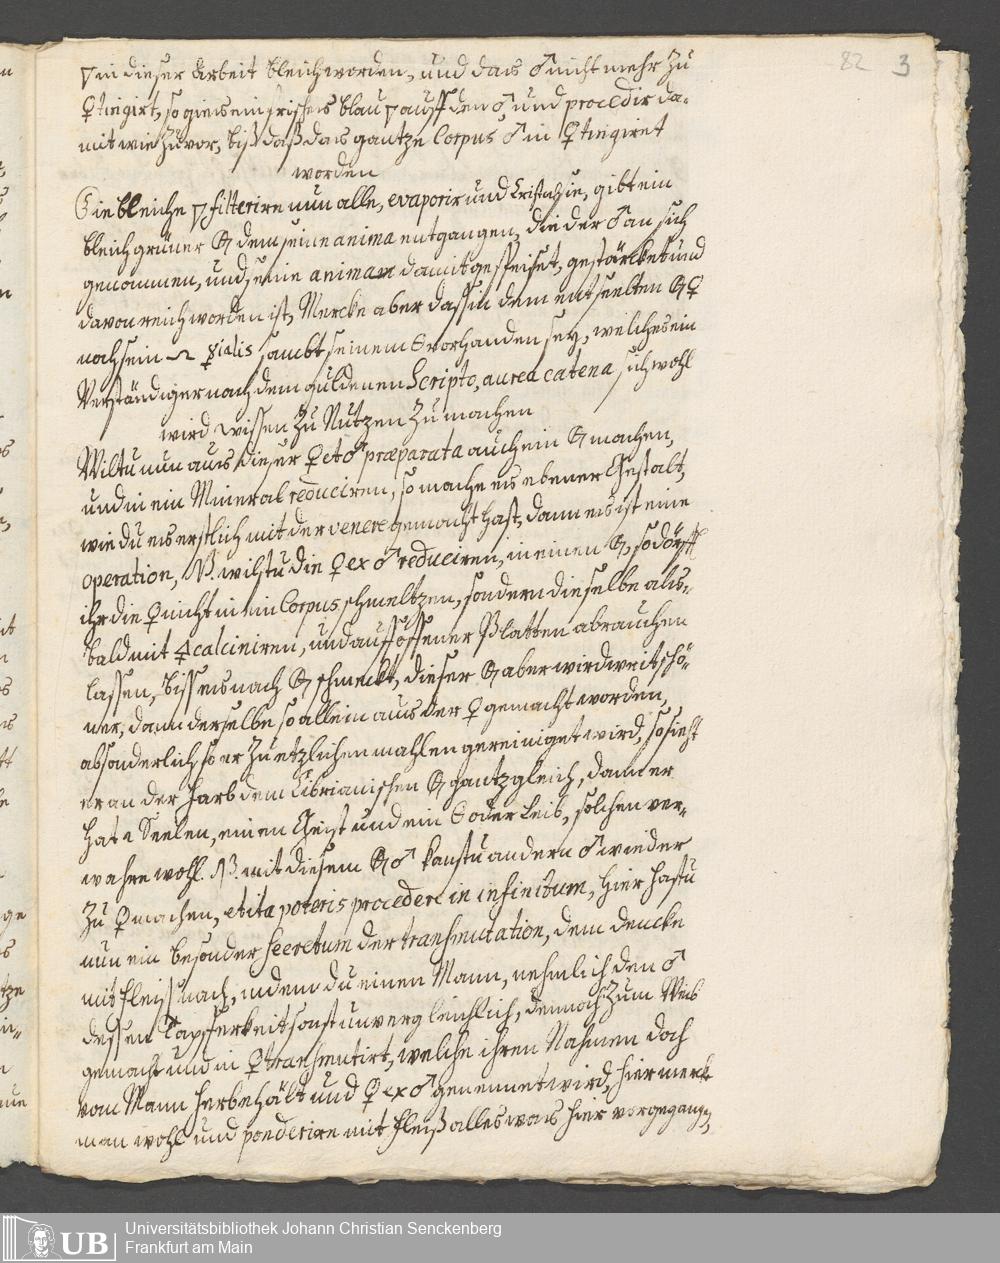 82 3
🜄 in dieser Arbeit bleich worden, und das ♂ nicht mehr zu
♀ tingirt, so gies ein frisches blau 🜄 auff den ♂ und procedir da-
mit wie zuvor, biß daß das gantze Corpus ♂ in ♀ tingiret
worden
Die bleiche 🜄 filterire nun alle, evaporir und Cristalsie, gibt ein
bleich grüner 🜖 dem seine anima entgangen, die der ♂ an sich
genommen, und seine animam damit gespeiset, gestärcket und
davon reich worden ist, Mercke aber dass in dem entseelten 🜖 ♀
noch sein ☿ialis sambt seinem vorhanden sey, welches ein
Verständiger nach dem guldenen Scripto, aurea catena sich wohl
wird wissen zu Nutzen zu machen
Wiltu nun aus dieser ♀ et ♂ præparata auch ein 🜖 machen,
und in ein Mineral reduciren, so mache es ebener Gestalt,
wie du es erstlich mit der venere gemacht hast, dann es ist eine
operation, NB. wilstu die ♀ ex ♂ reduciren, in einen 🜖, so dörfft
ihr die ♀ nicht in ein Corpus schmeltzen, sondern dieselbe als-
bald mit 🜍 calciniren, und auff offener Platten abrauchen
lassen, biss es nach 🜖 schmeckt, dieser 🜖 aber wird weit schö-
ner, dann derselbe so allein aus der ♀ gemacht worden,
absonderlich so er zu etzlichen mahlen gereiniget wird, so sieht
er an der farb dem Ciprianischen 🜖 gantz gleich, dann er
hat 2 Seelen, einen Geist und ein oder Leib, solchen ver-
wahre wohl. NB. mit diesem 🜖 ♂ kanstu andern ♂ wieder
zu ♀ machen, et ita poteris procedere in infinitum, hier hastu
nun ein besonder Secretum der transmutation, dem dencke
mit fleiß nach, indem du einen Mann, nehmlich den ♂
dessen Tapfferkeit sonst unvergleichlich, dennoch zum Weib
gemacht und in ♀ transmutirt, welche ihren Nahmen doch
vom Mann herbehält und ♀ ex ♂ genennet wird, hier merck
man wohl und ponderire mit fleiß alles was hier vorgegangen,
UB Universitätsbibliothek Johann Christian Senckenberg
Frankfurt am Main